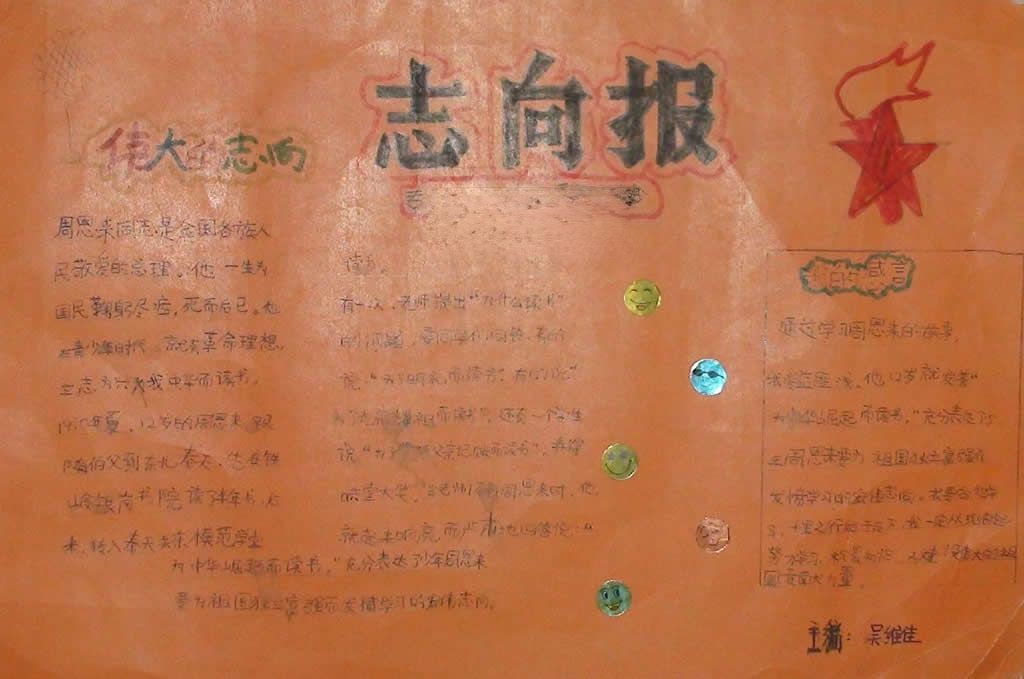 志向报
伟大的志向
周恩来同志是全国各族人
民敬爱的总理。他一生为
国民鞠躬尽瘁,死而后已。他
在青少年时代,就有革命理想,
立志为中华而读书。
夏,12岁的周恩来跟
随伯父到东北奉天,先在铁
岭银岗书院读了半年书,后
来,转入奉天关东模范学堂
读书。
有一次,老师提出“为什么读书”
的问题,要同学们回答。有的
说:“为了明理而读书”。有的说:
为了光耀门祖而读书”,还有一个学生
说:“为了帮父亲记账而读书”,弄得
哄堂大笑。当老师问到周恩来时,他
站起来响亮而严肃地回答说:“
为中华崛起而读书。”充分表达了少年周恩来
要为祖国独立富强而发愤学习的宏伟志向。
我的感言
通过学习周恩来的故事,
我 他12岁就发誓“
为中华崛起而读书,”充分表达了少
年周恩来要为祖国独立富强而
发愤学习的宏伟志向。我
努力学习,
国贡献力量。
主编:吴维佳